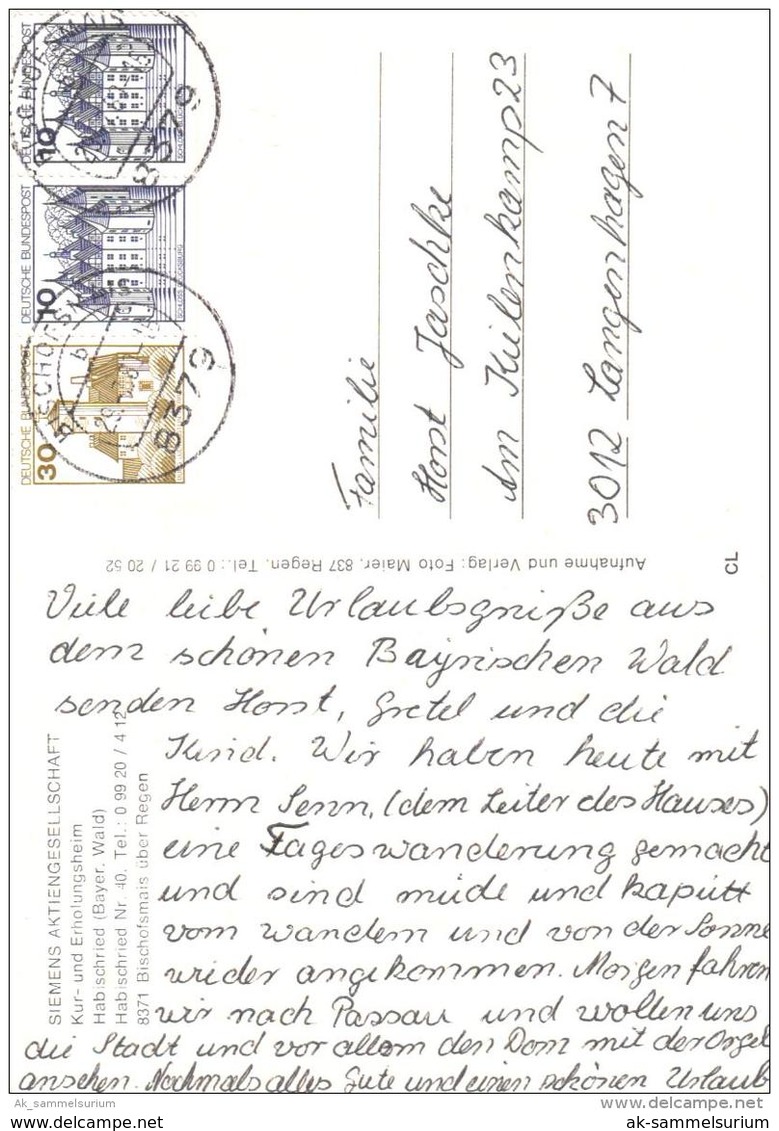 DEUTSCHE BUNDESPOST
10
DEUTSCHE BUNDESPOST
10
SCHLOSS GLÜCKSBURG
DEUTSCHE BUNDESPOST
30
8379
8379
Familie
Horst Jaschke
Am Kielenkamp 23
3012 Langenhagen 7
Aufnahme und Verlag: Foto Maier, 837 Regen, Tel.: 0 99 21 / 20 52
CL
SIEMENS AKTIENGESELLSCHAFT
Kur- und Erholungsheim
Habischried (Bayer. Wald)
Habischried Nr. 40, Tel.: 0 99 20 / 4 12
8371 Bischofsmais über Regen
Viele leibe Urlaubsgrüße aus
dem schönen Bayrischen Wald
senden Horst, Gretel und die
Kind. Wir haben heute mit
Herrn Senn, (dem Leiter des Hauses)
eine Tageswanderung gemacht
und sind müde und kaputt
vom wandern und von der Sonne
wider angekommen. Morgen fahren
wir nach Passau und wollen uns
die Stadt und vor allem den Dom mit der Orgel
ansehen. Nochmals alles Gute und einen schönen Urlaub
Ak_sammelsurium
www.delcampe.net
ak-sammelsurium